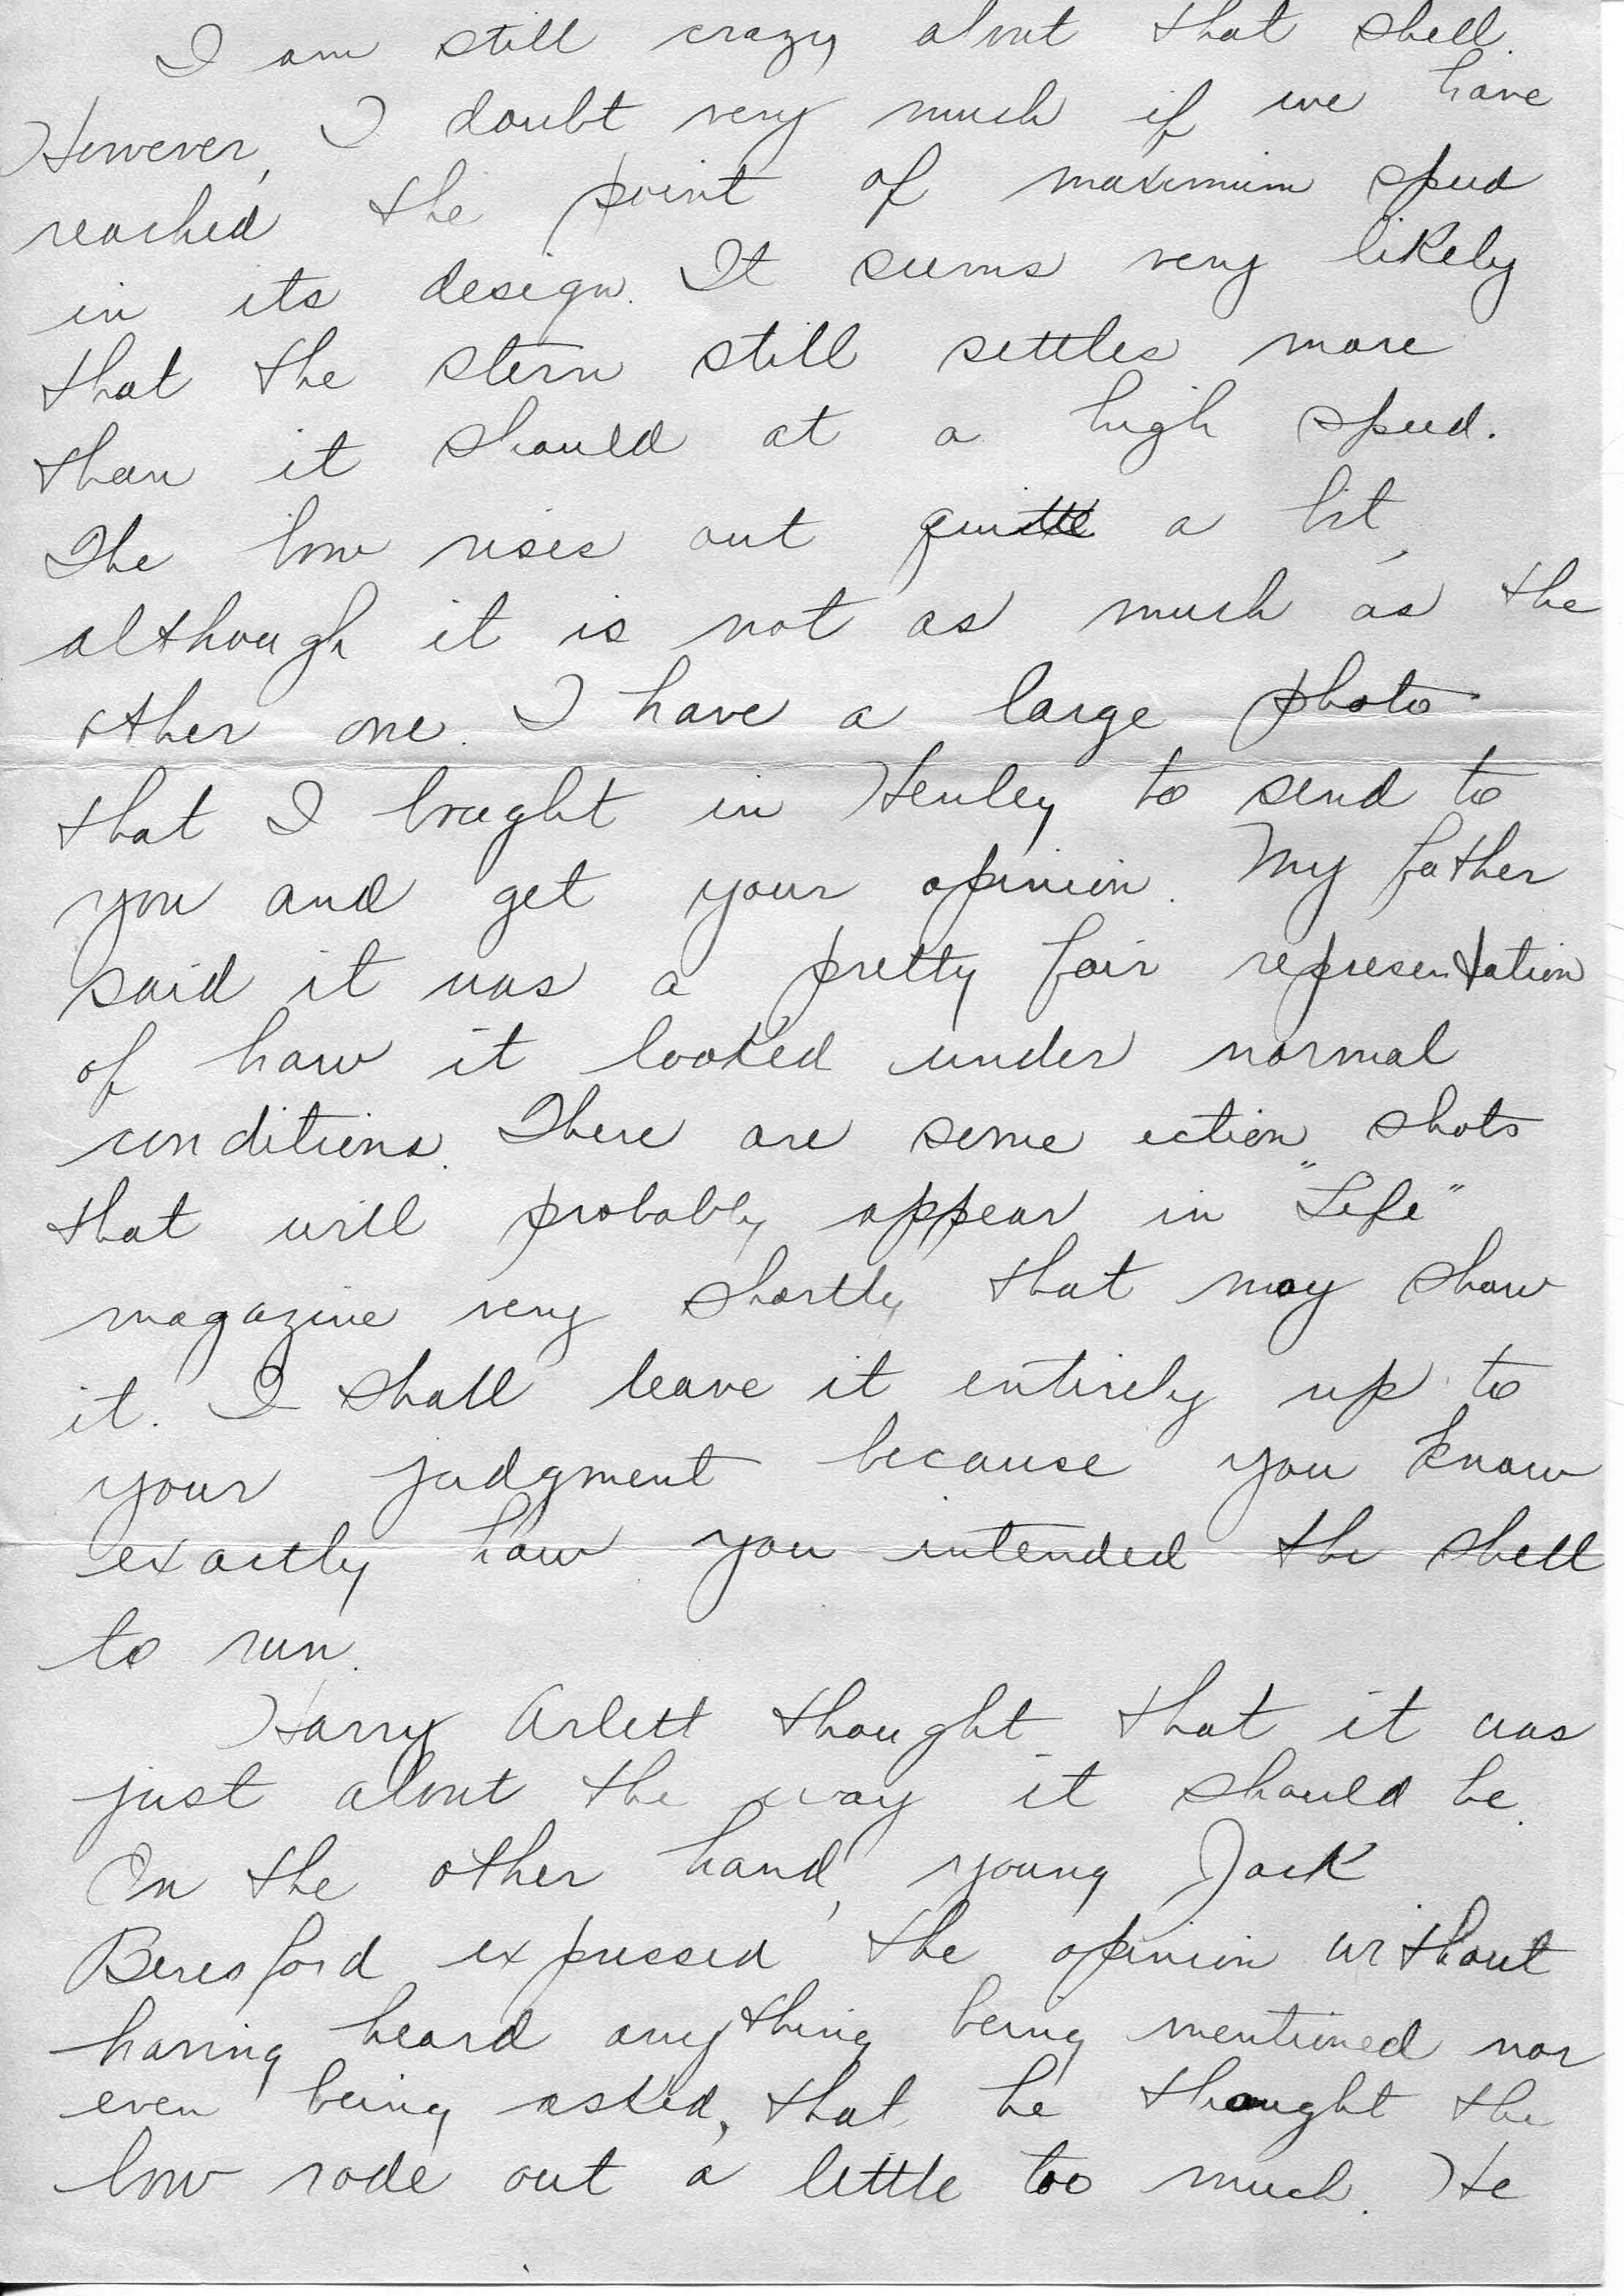 I am still crazy about that shell.
However, I doubt very much if we have
reached the point of maximum speed
in its design. It seems very likely
that the stern still settles more
than it should at a high speed.
The bow rises out quite a bit,
although it is not as much as the
other one. I have a large photo
that I bought in Henley to send to
you and get your opinion. My father
said it was a pretty fair representation
of how it looked under normal
conditions. There are some action shots
that will probably appear in "Life"
magazine very shortly that may show
it. I shall leave it entirely up to
your judgment because you know
exactly how you intended the shell
to run.
Harry Arlett thought that it was
just about the way it should be.
On the other hand, young Jack
Beresford expressed the opinion without
having heard anything being mentioned nor
even being asked, that he thought the
bow rode out a little too much. He